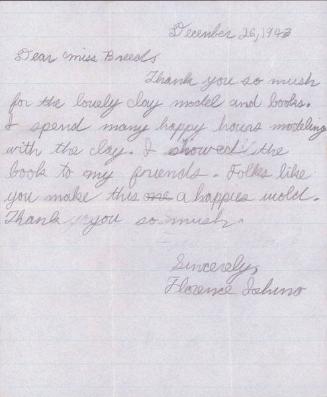 December 26, 1943
Dear Miss Breeds
Thank you so mush
for the lovely clay model and books.
I spend many happy hours modeling
with the clay. I showed the
book to my friends. Folks like
you make this a happies wold.
Thank you so mush.
Sincerely,
Florence Ishino